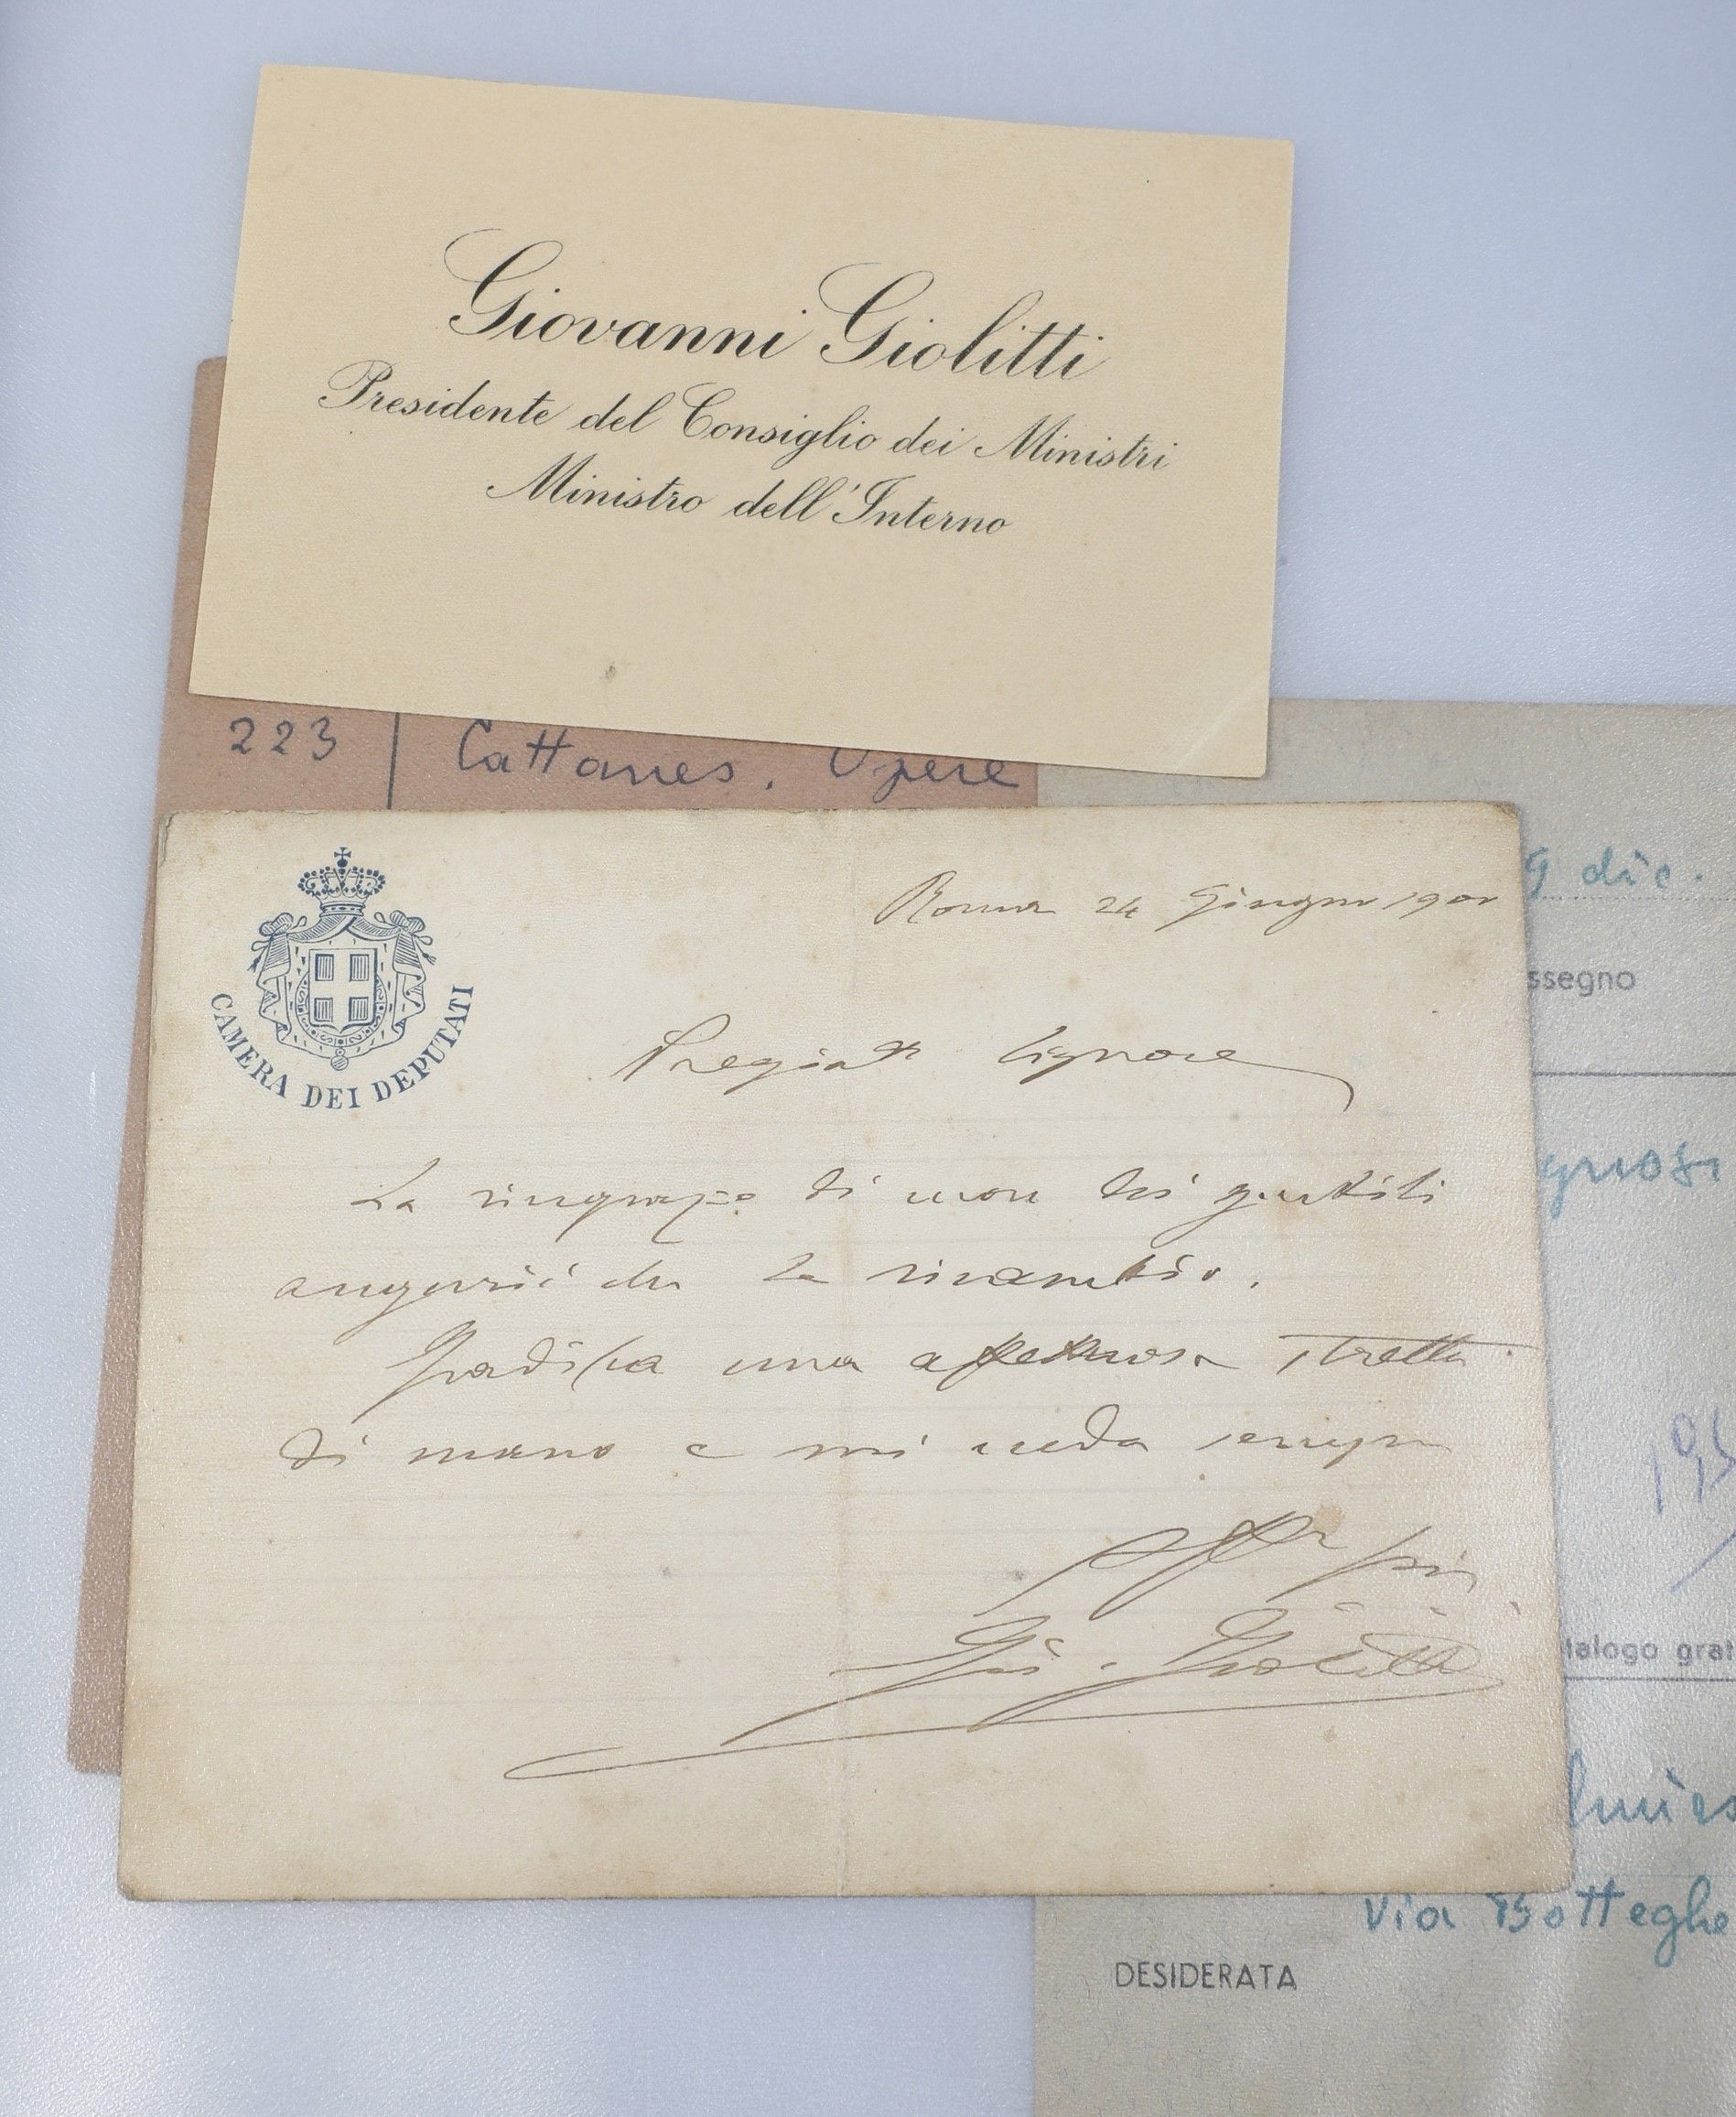 Giovanni Giolitti
Presidente del Consiglio dei Ministri
Ministro dell'Interno
223 Cattaneo. Opere
CAMERA DEI DEPUTATI
Roma 24 Giugno
9 dic.
ssegno
Pregiat Signore
La ringrazio di cuore dei gentili
augurii che Le ricambio.
Gradisca una affettuosa stretta
di mano e mi creda sempre
Gio. Giolitti
talogo grat
Via Botteghe
DESIDERATA